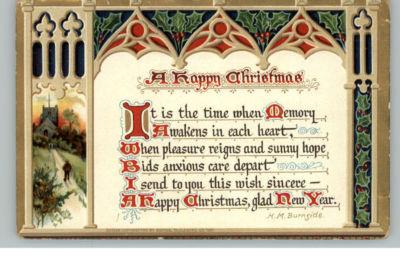 A Happy Christmas
It is the time when Memory
Awakens in each heart,
When pleasure reigns and sunny hope
Bids anxious care depart
I send to you this wish sincere —
A Happy Christmas, glad New Year.
H.M. Burnside.